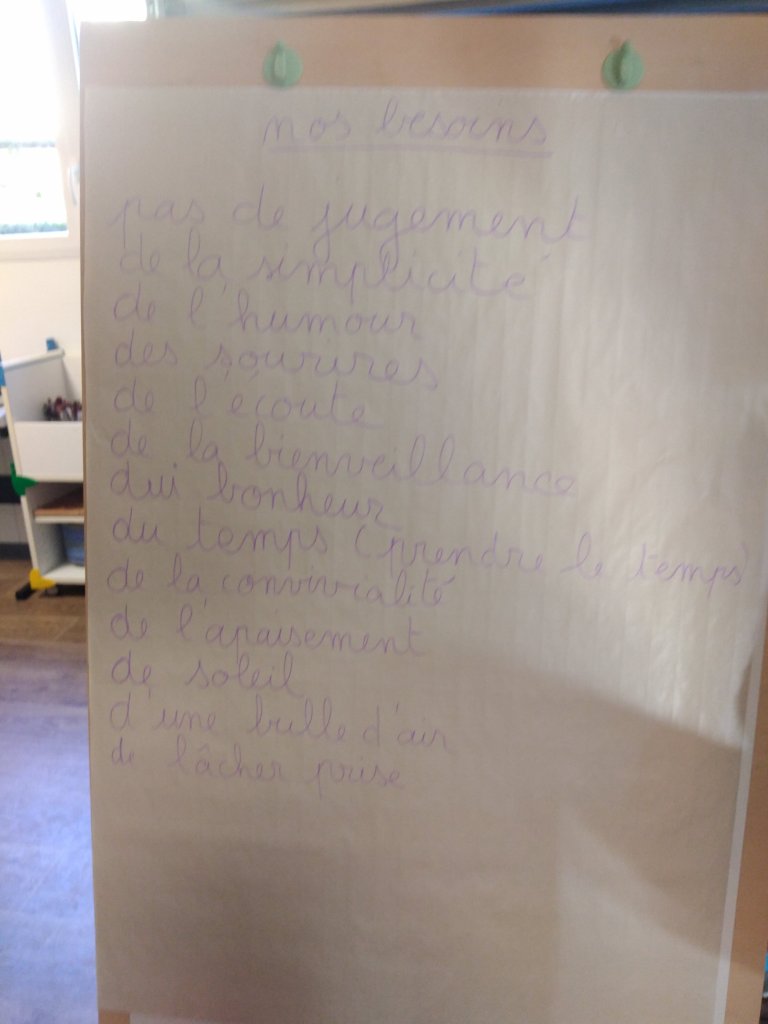 nos besoins
pas de jugement
de la simplicité
de l'humour
des sourires
de l'écoute
de la bienveillance
dui bonheur
du temps (prendre le temps)
de la convivialité
de l'apaisement
de soleil
d'une bulle d'air
de lâcher prise